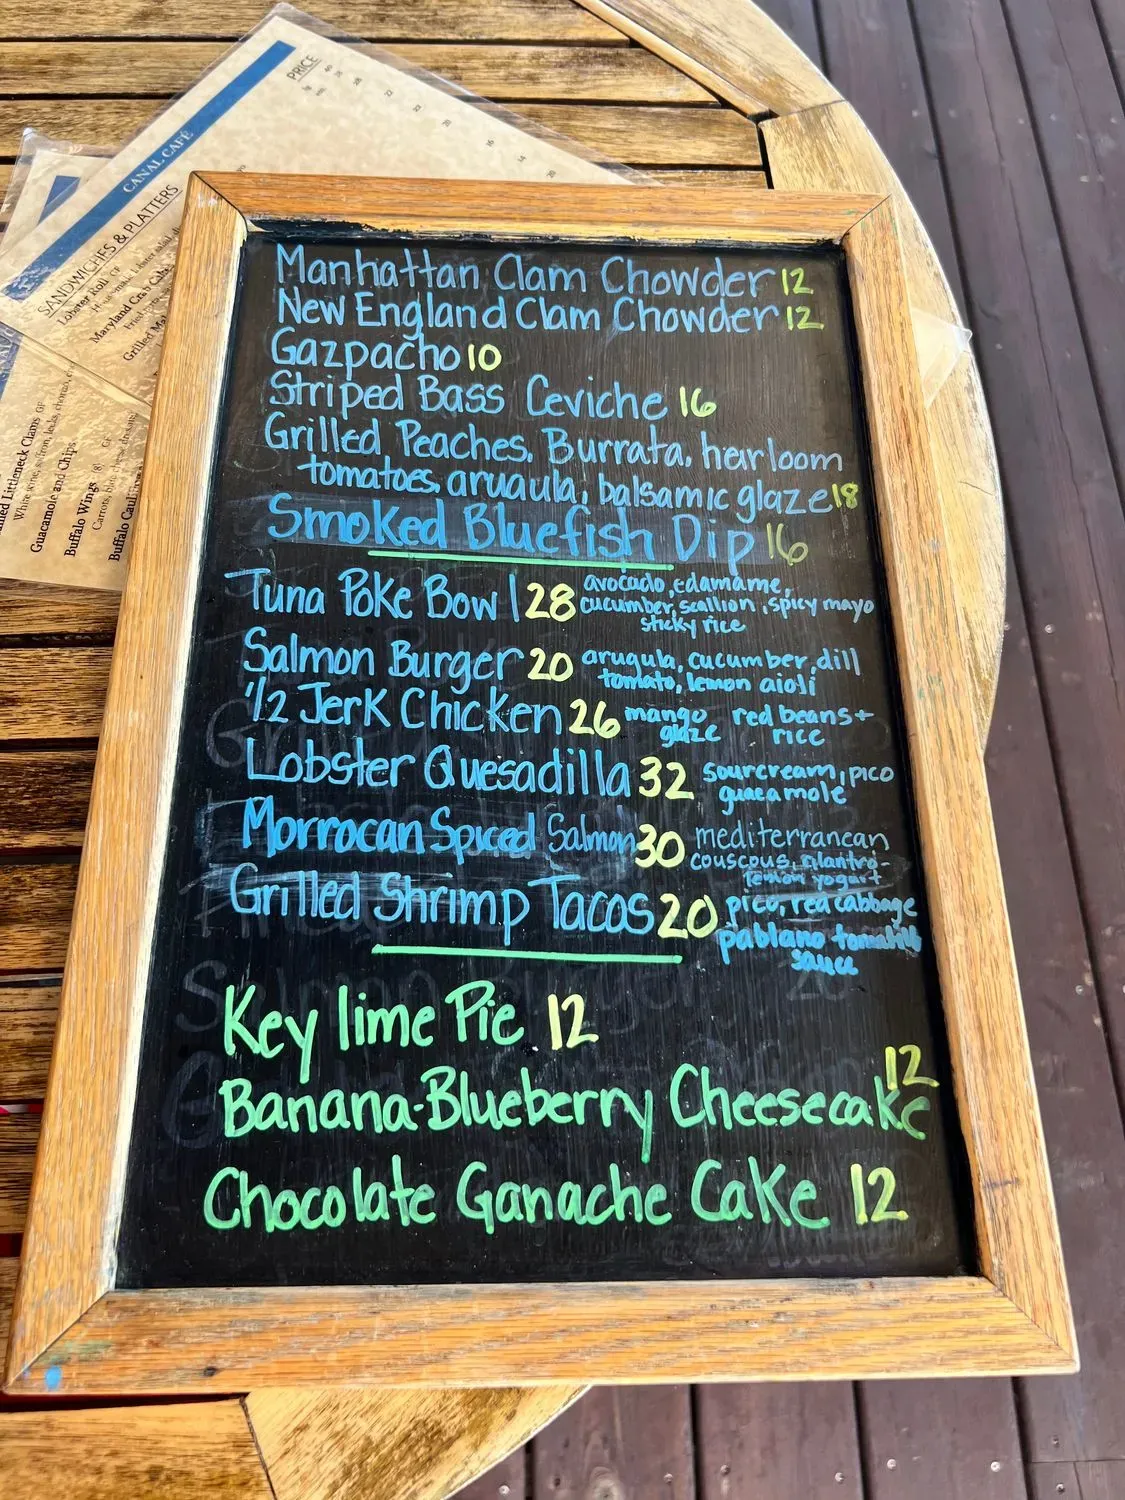 PRICE
CANAL CAFÉ
SANDWICHES & PLATTERS
Lobster Roll GF
Maryland Crab Cake
Grilled
Littleneck Clams GF
White wine, saffron, leeks, chorizo,
Guacamole and Chips GF
Buffalo Wings (8) GF
Carrots, blue cheese dressing
Buffalo
Manhattan Clam Chowder 12
New England Clam Chowder 12
Gazpacho 10
Striped Bass Ceviche 16
Grilled Peaches, Burrata, heirloom
tomatoes, aruaula, balsamic glaze 18
Smoked Bluefish Dip 16
Tuna Poke Bowl 28 avocado, edamame,
cucumber, scallion, spicy mayo
sticky rice
Salmon Burger 20 arugula, cucumber, dill
tomato, lemon aioli
1/2 Jerk Chicken 26 mango red beans +
glaze rice
Lobster Quesadilla 32 sourcream, pico
guacamole
Morrocan Spiced Salmon 30 mediterranean
couscous, cilantro-
lemon yogurt
Grilled Shrimp Tacos 20 pico, red cabbage
pablano tomatillo
sauce
Key lime Pie 12
Banana-Blueberry Cheesecake 12
Chocolate Ganache Cake 12